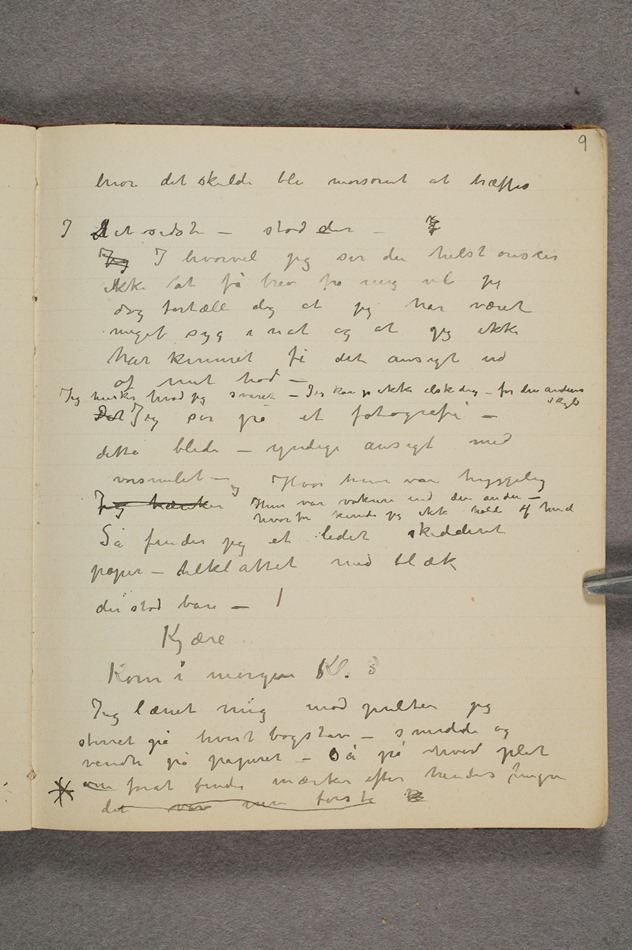 9
hvor det skulde bli morsomt at træffes
I det sidste – stod der –
I hvorvel jeg ser du helst ønsker
ikke at få brev fra mig vil jeg
dog fortælle dig at jeg har været
meget syg i nat og at jeg ikke
har kunnet få det ansigt ud
af mit hod –
Jeg husker hvad jeg svarte – Jeg kan jo ikke elske dig – for den andens skyld
Jeg ser på et fotografi –
dette blede – yndige ansigt med
Hvor hun var hyggelig
og Hun var vakrere end den anden –
hvorfor kunde jeg ikke holde af hende
Så finder jeg et lidet skiddent
papir – tilklattet med blæk
der stod bare –
Kjære
Kom i morgen Kl. 3
Jeg lænet mig mod pulten jeg
stirret på hvert bogstav – snudde og
vendte på papiret – Så på hver plet
om forat finde mærker efter hendes fingre
det var min første